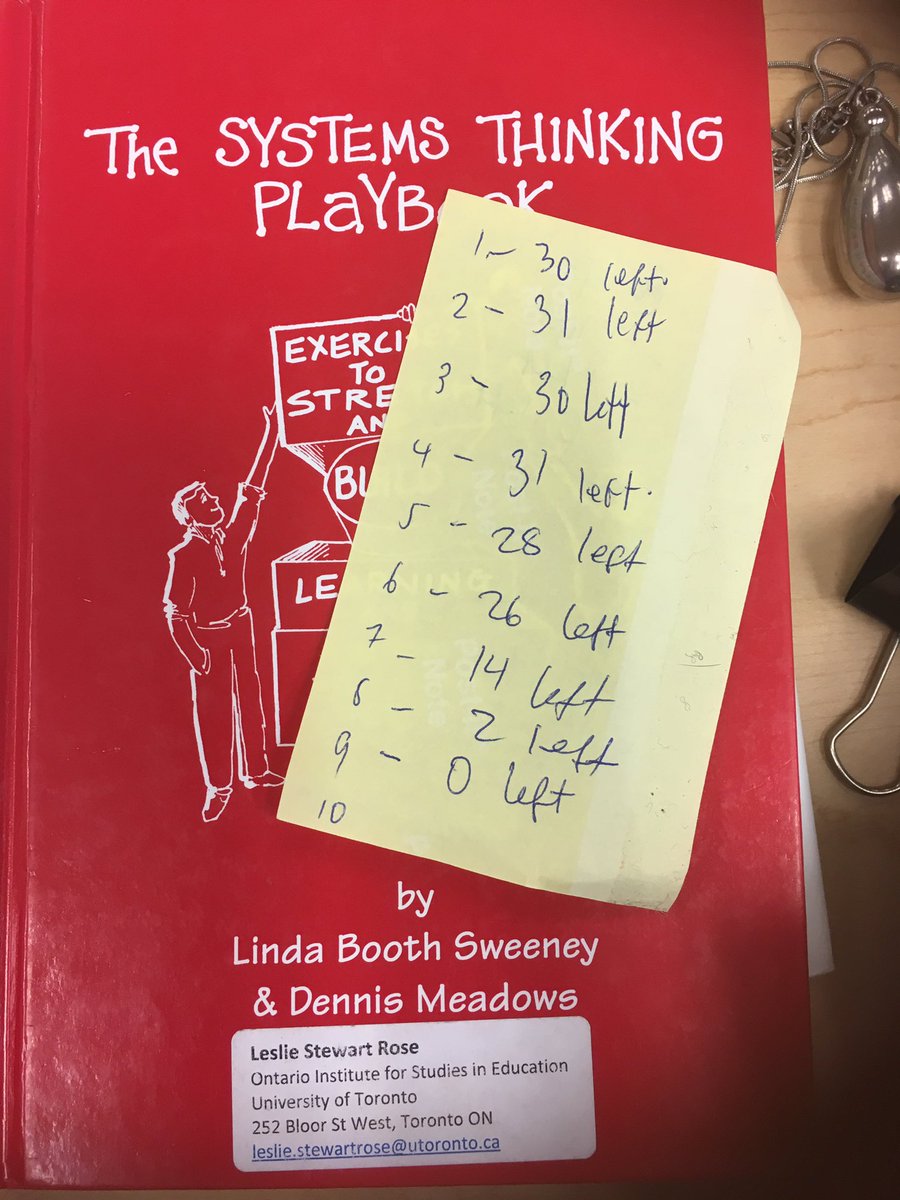 The SYSTEMS THINKING
PLaYB
EXERCI
TO
STRE
AN
BU
LEARNING
1 - 30 left.
2 - 31 left
3 - 30 left
4 - 31 left.
5 - 28 left
6 - 26 left
7 - 14 left
8 - 2 left
9 - 0 left
10
by
Linda Booth Sweeney
& Dennis Meadows
Leslie Stewart Rose
Ontario Institute for Studies in Education
University of Toronto
252 Bloor St West, Toronto ON
leslie.stewartrose@utoronto.ca